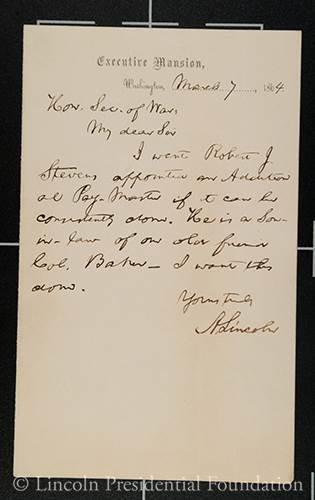 Executive Mansion,
Washington, March 7, 1864
Hon. Sec. of War,
My dear Sir
I want Robert J.
Stevens appointed an Addition
al Pay-Master if it can be
consistently done. He is a Son-
in-law of our old friend
Col. Baker— I want this
done.
Yours truly
A. Lincoln
© Lincoln Presidential Foundation